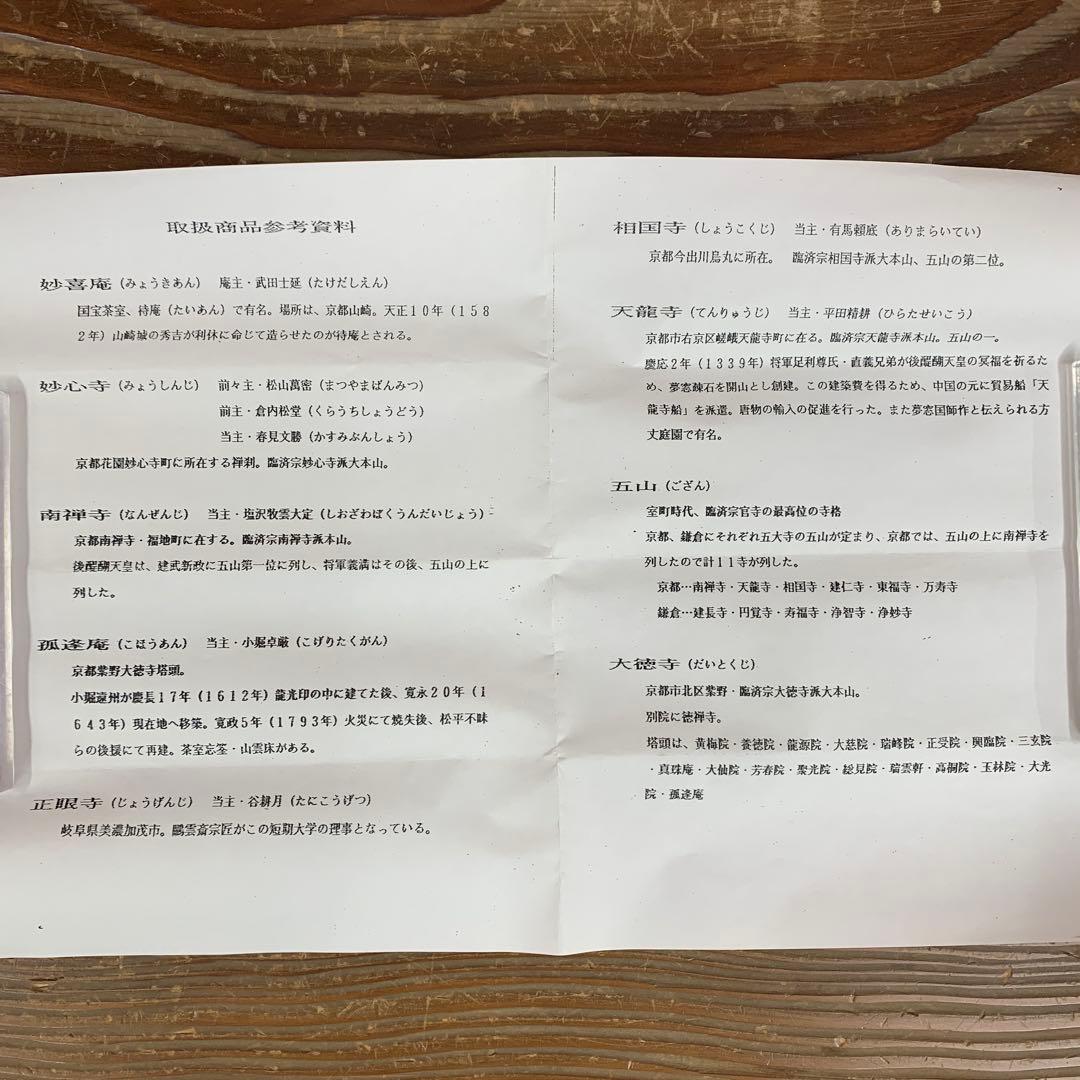 取扱商品参考資料
妙喜庵（みょうきあん）　庵主・武田士延（たけだしえん）
国宝茶室、待庵（たいあん）で有名。場所は、京都山崎。天正１０年（１５８
２年）山崎城の秀吉が利休に命じて造らせたのが待庵とされる。
妙心寺（みょうしんじ）　前々主・松山萬密（まつやまばんみつ）
前主・倉内松堂（くらうちしょうどう）
当主・春見文勝（かすみぶんしょう）
京都花園妙心寺町に所在する禅刹。臨済宗妙心寺派大本山。
南禅寺（なんぜんじ）　当主・塩沢牧雲大定（しおざわぼくうんだいじょう）
京都南禅寺・福地町に在する。臨済宗南禅寺派本山。
後醍醐天皇は、建武新政に五山第一位に列し、将軍義満はその後、五山の上に
列した。
孤逢庵（こほうあん）　当主・小堀卓厳（こげりたくがん）
京都紫野大徳寺塔頭。
小堀遠州が慶長１７年（１６１２年）龍光印の中に建てた後、寛永２０年（１
６４３年）現在地へ移築。寛政５年（１７９３年）火災にて焼失後、松平不昧
らの後援にて再建。茶室忘筌・山雲床がある。
正眼寺（じょうげんじ）　当主・谷耕月（たにこうげつ）
岐阜県美濃加茂市。鵬雲斎宗匠がこの短期大学の理事となっている。
相国寺（しょうこくじ）　当主・有馬頼底（ありまらいてい）
京都今出川烏丸に所在。　臨済宗相国寺派大本山、五山の第二位。
天龍寺（てんりゅうじ）　当主・平田精耕（ひらたせいこう）
京都市右京区嵯峨天龍寺町に在る。臨済宗天龍寺派本山。五山の一。
慶応２年（１３３９年）将軍足利尊氏・直義兄弟が後醍醐天皇の冥福を祈るた
め、夢窓疎石を開山とし創建。この建築費を得るため、中国の元に貿易船「天
龍寺船」を派遣。唐物の輸入の促進を行った。また夢窓国師作と伝えられる方
丈庭園で有名。
五山（ござん）
室町時代、臨済宗官寺の最高位の寺格
京都、鎌倉にそれぞれ五大寺の五山が定まり、京都では、五山の上に南禅寺を
列したので計１１寺が列した。
京都…南禅寺・天龍寺・相国寺・建仁寺・東福寺・万寿寺
鎌倉…建長寺・円覚寺・寿福寺・浄智寺・浄妙寺
大徳寺（だいとくじ）
京都市北区紫野・臨済宗大徳寺派大本山。
別院に徳禅寺。
塔頭は、黄梅院・養徳院・龍源院・大慈院・瑞峰院・正受院・興臨院・三玄院
・真珠庵・大仙院・芳春院・聚光院・総見院・瑞雲軒・高桐院・玉林院・大光
院・孤逢庵